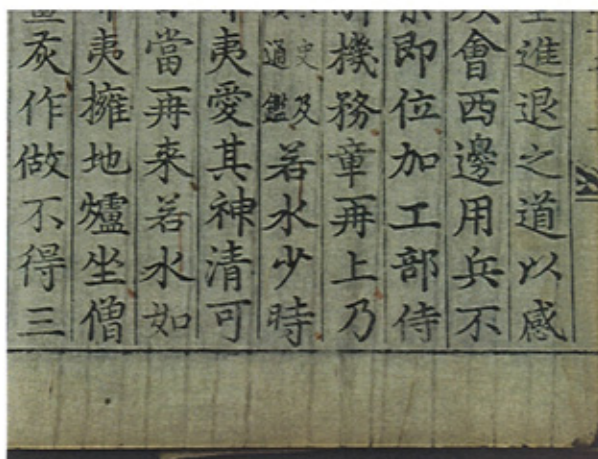 進退之道以感
會西邊用兵不
即位加工部侍
機務章再上乃
史及通鑑若水少時
夷愛其神清可
當再来若水如
夷擁地爐坐僧
亥作做不得三